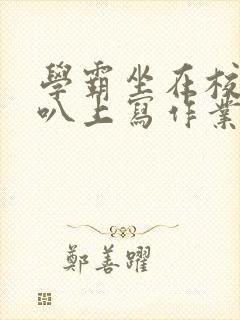 學霸坐在校
叭上寫作業
鄭善躍